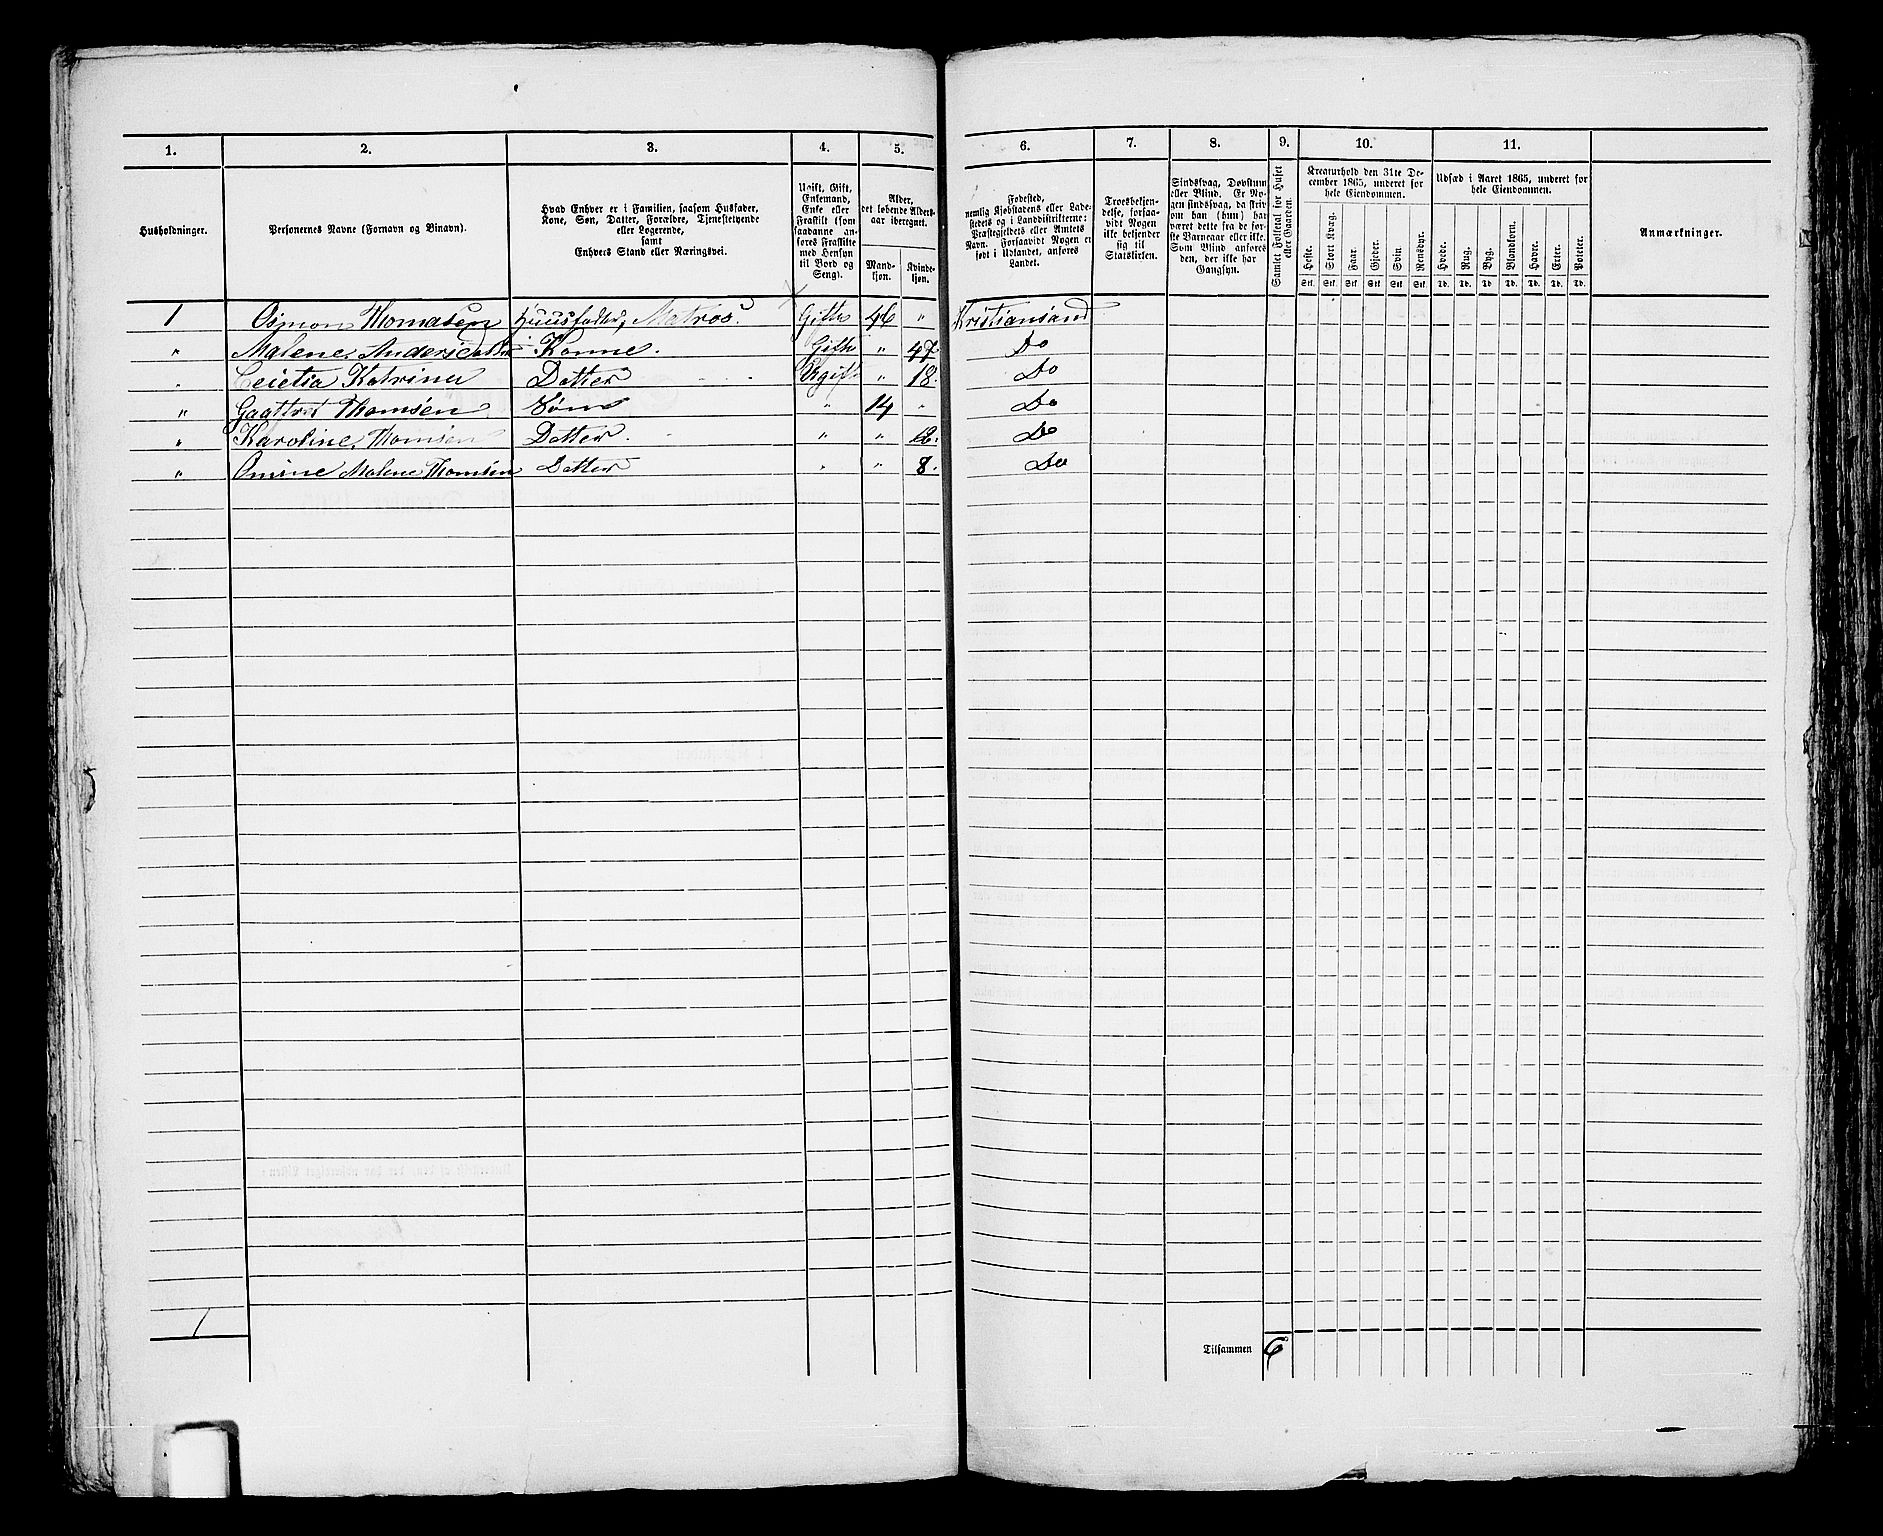 1. 2. 3. 4. 5. 6. 7. 8. 9. 10. 11.
Husholdninger.
Personernes Navne (Fornavn og Binavn).
Hvad Enhver er i Familien, saasom Husfader,
Kone, Søn, Datter, Forældre, Tjenestetyende
eller Logerende,
samt
Enhvers Stand eller Næringsvei.
Ugift, Gift,
Enkemand,
Enke eller
Fraskilt (som
saadanne an-
føres Fraskilte
med Hensyn
til Bord og
Seng).
Alder,
det løbende Alders-
aar iberegnet.
Mand-
kjøn.
Kvinde-
kjøn.
Fødested,
nemlig Kjøbstadens eller Lade-
stedets og i Landdistrikterne:
Præstegjeldets eller Amtets
Navn. Forsaavidt Nogen er
født i Udlandet, anføres
Landet.
Troesbekjen-
delse, forsaa-
vidt Nogen
ikke bekjender
sig til
Statskirken.
Sindssvag, Døvstum
eller Blind. Er No-
gen sindssvag, da skriv
om han (hun) har
været dette fra de før-
ste Barneaar eller ikke.
Som Blind anføres
den, der ikke har
Gangsyn.
Samlet Folketal for Huset
eller Gaarden.
Kreaturhold den 31te De-
cember 1865, underet for
hele Eiendommen.
Heste. Stort Kvæg. Faar. Gjeder. Svin. Rensdyr.
Stk. Stk. Stk. Stk. Stk. Stk.
Udsæd i Aaret 1865, underet for
hele Eiendommen.
Hvede. Rug. Byg. Blandkorn. Havre. Erter. Poteter.
Td. Td. Td. Td. Td. Td. Td.
Anmærkninger.
1 Osmon Thomasen Huusfader, Matros Gifte 46 " Kristiansand
" Malene Andersdatter Konne. Gifte " 47 Do
" Katrine Datter Ugift " 18. Do
" Thomsen Søn " 14 " Do
" Karoline Thomsen Datter. " " 12. Do
" Omine Malene Thomsen Datter " " 8. Do
1
Tilsammen 6